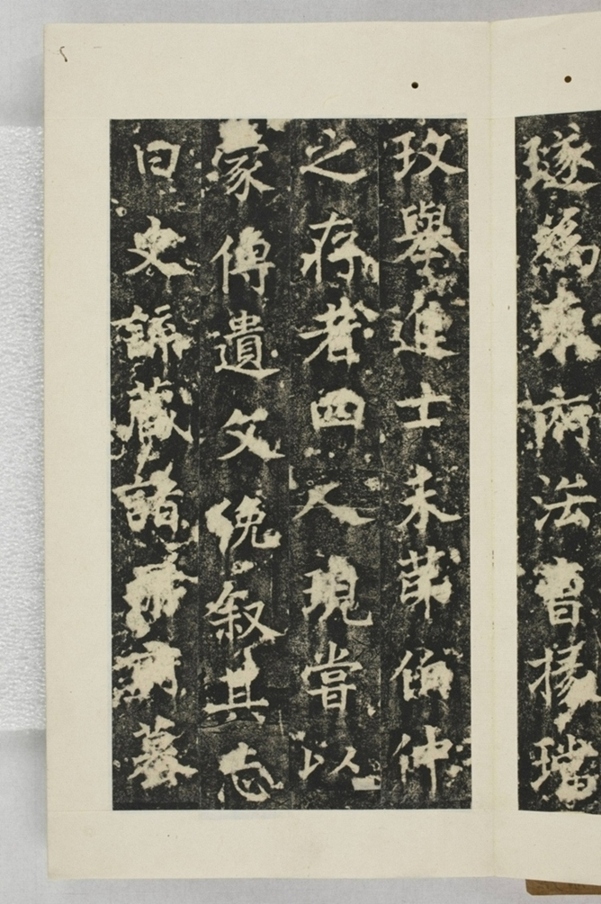 璲為府法曹掾
玫舉進士未第倫仲
之存者四人現嘗以
家傳遺文俛叙其志
曰史藏諸墓